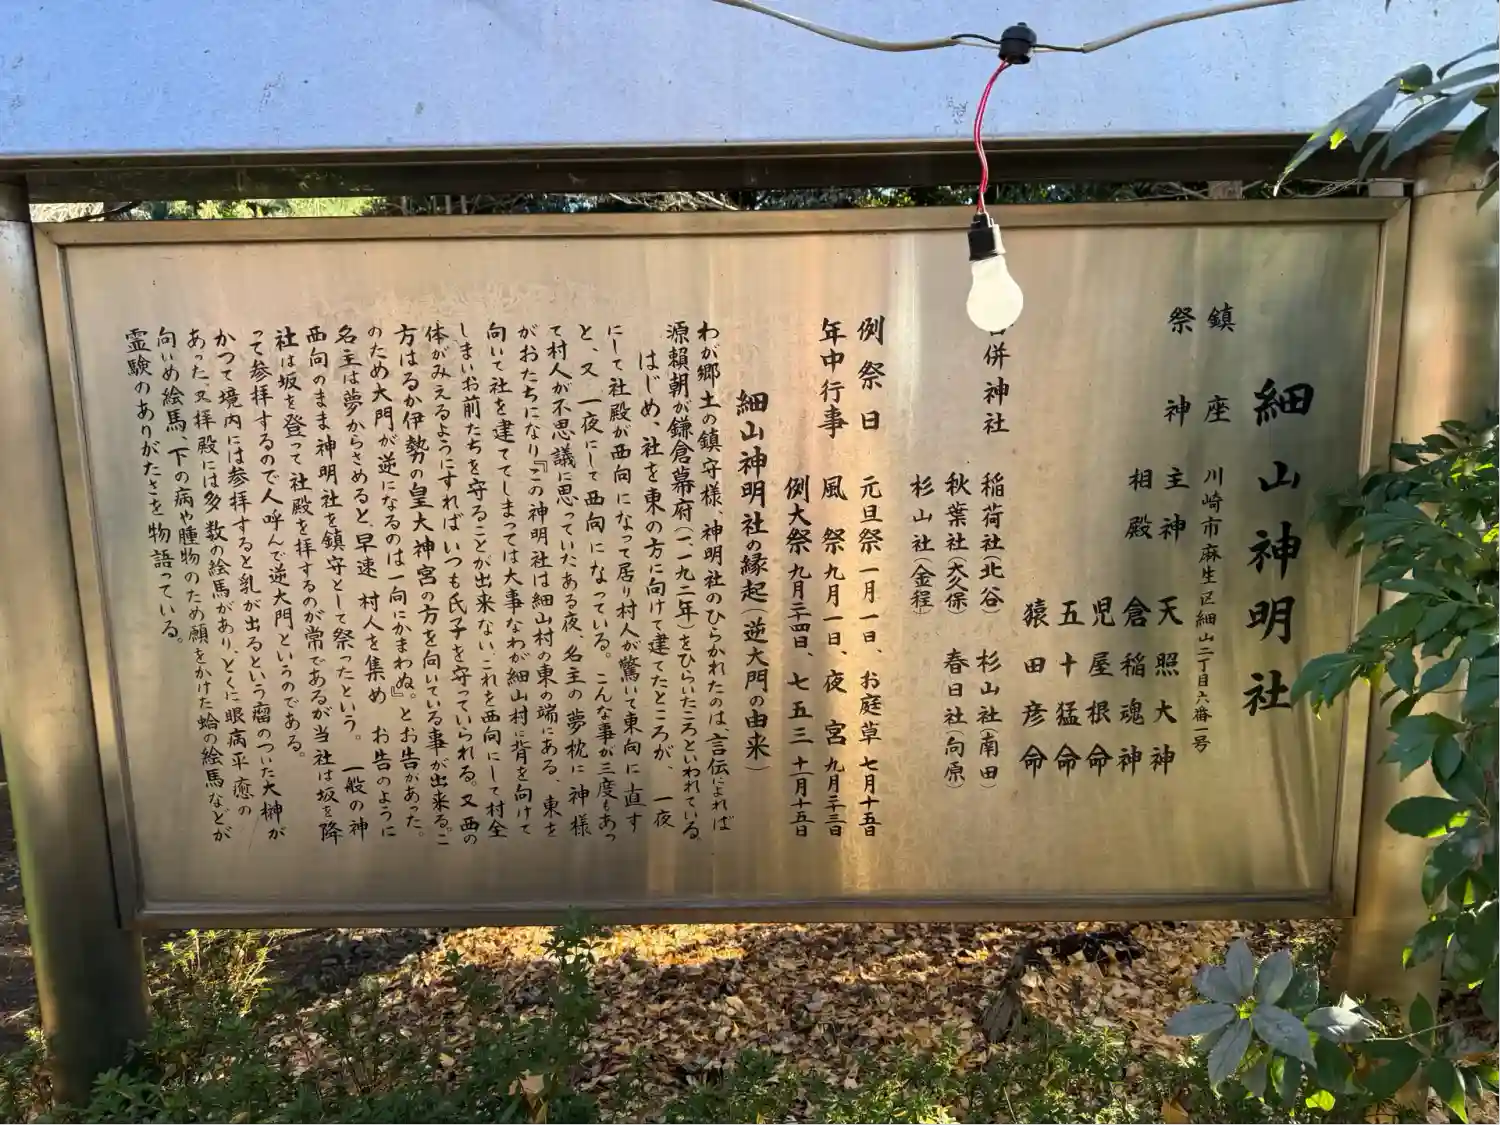 細山神明社
鎮座 川崎市麻生区細山二丁目六番一号
祭神 主神 天照大神
相殿 倉稲魂神
児屋根命
五十猛命
猿田彦命
併神社 稲荷社(北谷) 杉山社(南田)
秋葉社(大久保) 春日社(向原)
杉山社(金程)
例祭日 元旦祭 一月一日、お庭草 七月十五日
年中行事 風祭 九月一日、夜宮 九月二十三日
例大祭 九月二十四日、七五三 十一月十五日
細山神明社の縁起(逆大門の由来)
わが郷土の鎮守様、神明社のひらかれたのは、言伝によれば
源頼朝が鎌倉幕府(一一九二年)をひらいたころといわれている
はじめ、社を東の方に向けて建てたところが、一夜
にして社殿が西向になって居り村人が驚いて東向に直す
と、又一夜にして西向になっている。こんな事が三度もあっ
て村人が不思議に思っていたある夜、名主の夢枕に神様
がおたちになり『この神明社は細山村の東の端にある、東を
向いて社を建ててしまっては大事なわが細山村に背を向けて
しまいお前たちを守ることが出来ない、これを西向にして村全
体がみえるようにすればいつも氏子を守っていられる。又西の
方はるか伊勢の皇大神宮の方を向いている事が出来る。こ
のため大門が逆になるのは一向にかまわぬ』とお告があった。
名主は夢からさめると、早速村人を集め お告のように
西向のまま神明社を鎮守として祭ったという。一般の神
社は坂を登って社殿を拝するのが常であるが当社は坂を降
って参拝するので人呼んで逆大門というのである。
かつて境内には参拝すると乳が出るという瘤のついた大榊が
あった、又拝殿には多数の絵馬があり、とくに眼病平癒の
向いめ絵馬、下の病や腫物のため願をかけた蛤の絵馬などが
霊験のありがたさを物語っている。